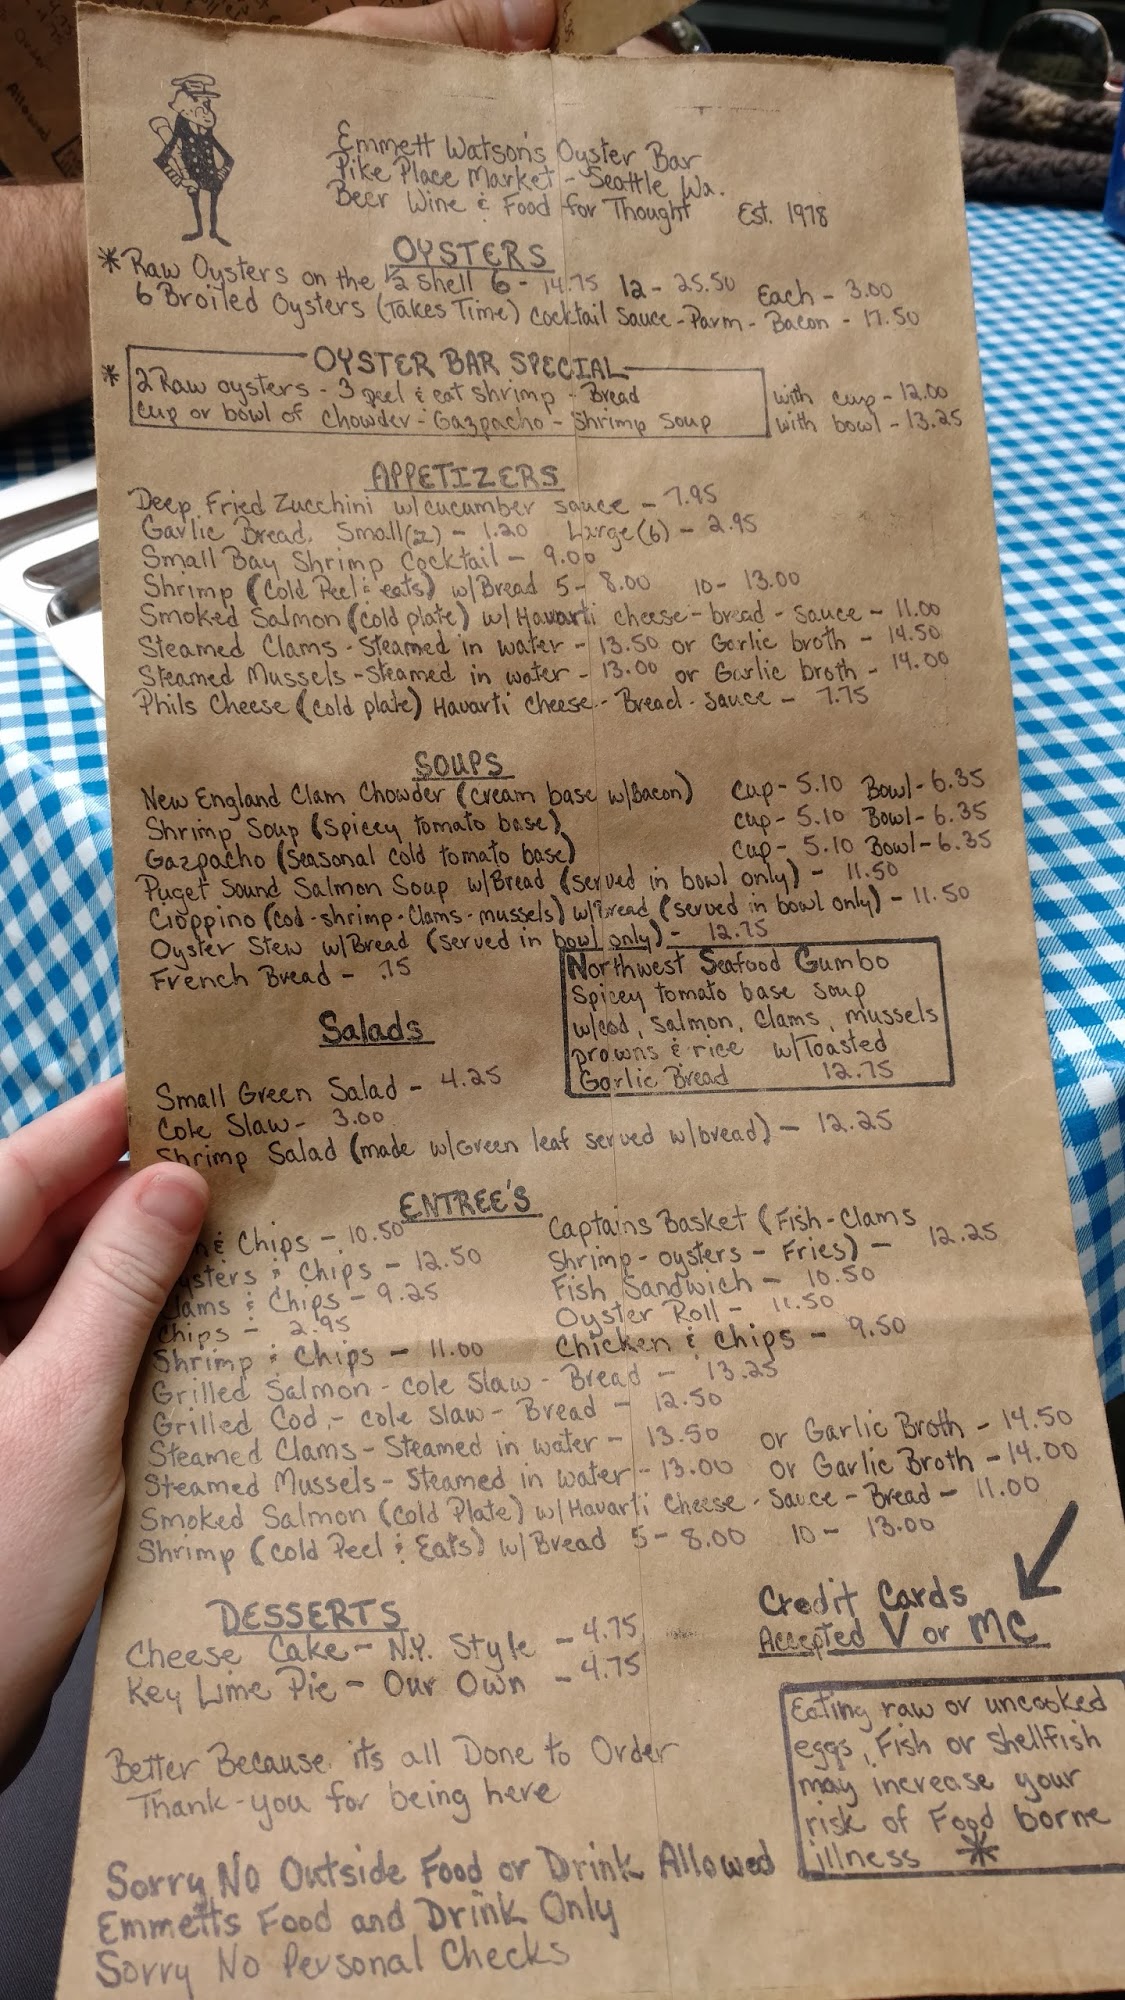 Emmett Watson's Oyster Bar
Pike Place Market - Seattle Wa.
Beer Wine & Food for Thought Est. 1978
OYSTERS
* Raw Oysters on the 1/2 Shell 6 - 14.75 12 - 25.50 Each - 3.00
6 Broiled Oysters (Takes Time) Cocktail Sauce - Parm - Bacon - 17.50
OYSTER BAR SPECIAL
* 2 Raw oysters - 3 peel & eat shrimp - Bread with cup - 12.00
cup or bowl of chowder - Gazpacho - Shrimp Soup with bowl - 13.25
APPETIZERS
Deep Fried Zucchini w/cucumber sauce - 7.95
Garlic Bread Small(2) - 1.20 Large(6) - 2.95
Small Bay Shrimp Cocktail - 9.00
Shrimp (Cold Peel & eats) w/Bread 5 - 8.00 10 - 13.00
Smoked Salmon (cold plate) w/Havarti cheese - bread - sauce - 11.00
Steamed Clams - Steamed in water - 13.50 or Garlic broth - 14.50
Steamed Mussels - Steamed in water - 13.00 or Garlic broth - 14.00
Phils Cheese (cold plate) Havarti Cheese - Bread - sauce - 7.75
SOUPS
New England Clam Chowder (cream base w/Bacon) Cup - 5.10 Bowl - 6.35
Shrimp Soup (Spicey tomato base) Cup - 5.10 Bowl - 6.35
Gazpacho (Seasonal cold tomato base) Cup - 5.10 Bowl - 6.35
Puget Sound Salmon Soup w/Bread (served in bowl only) - 11.50
Cioppino (cod - shrimp - Clams - mussels) w/Bread (served in bowl only) - 11.50
Oyster Stew w/Bread (served in bowl only) - 12.75
French Bread - .75
Northwest Seafood Gumbo
Spicey tomato base soup
w/cod, salmon, clams, mussels
prowns & rice w/Toasted
Garlic Bread 12.75
Salads
Small Green Salad - 4.25
Cole Slaw - 3.00
Shrimp Salad (made w/Green leaf served w/bread) - 12.25
ENTREE'S
& Chips - 10.50
ysters & Chips - 12.50
lams & Chips - 9.25
Chips - 2.95
Shrimp & Chips - 11.00
Captains Basket (Fish - Clams
Shrimp - oysters - Fries) - 12.25
Fish Sandwich - 10.50
Oyster Roll - 11.50
Chicken & Chips - 9.50
Grilled Salmon - cole slaw - Bread - 13.25
Grilled Cod - cole slaw - Bread - 12.50
Steamed Clams - Steamed in water - 13.50 or Garlic Broth - 14.50
Steamed Mussels - Steamed in water - 13.00 or Garlic Broth - 14.00
Smoked Salmon (cold Plate) w/Havarti Cheese - Sauce - Bread - 11.00
Shrimp (cold Peel & Eats) w/Bread 5 - 8.00 10 - 13.00
DESSERTS
Cheese Cake - N.Y. Style - 4.75
Key Lime Pie - Our Own - 4.75
Credit Cards
Accepted V or MC
Eating raw or uncooked
eggs, Fish or Shellfish
may increase your
risk of Food borne
illness *
Better Because its all Done to Order
Thank-you for being here
Sorry No Outside Food or Drink Allowed
Emmetts Food and Drink Only
Sorry No Personal Checks